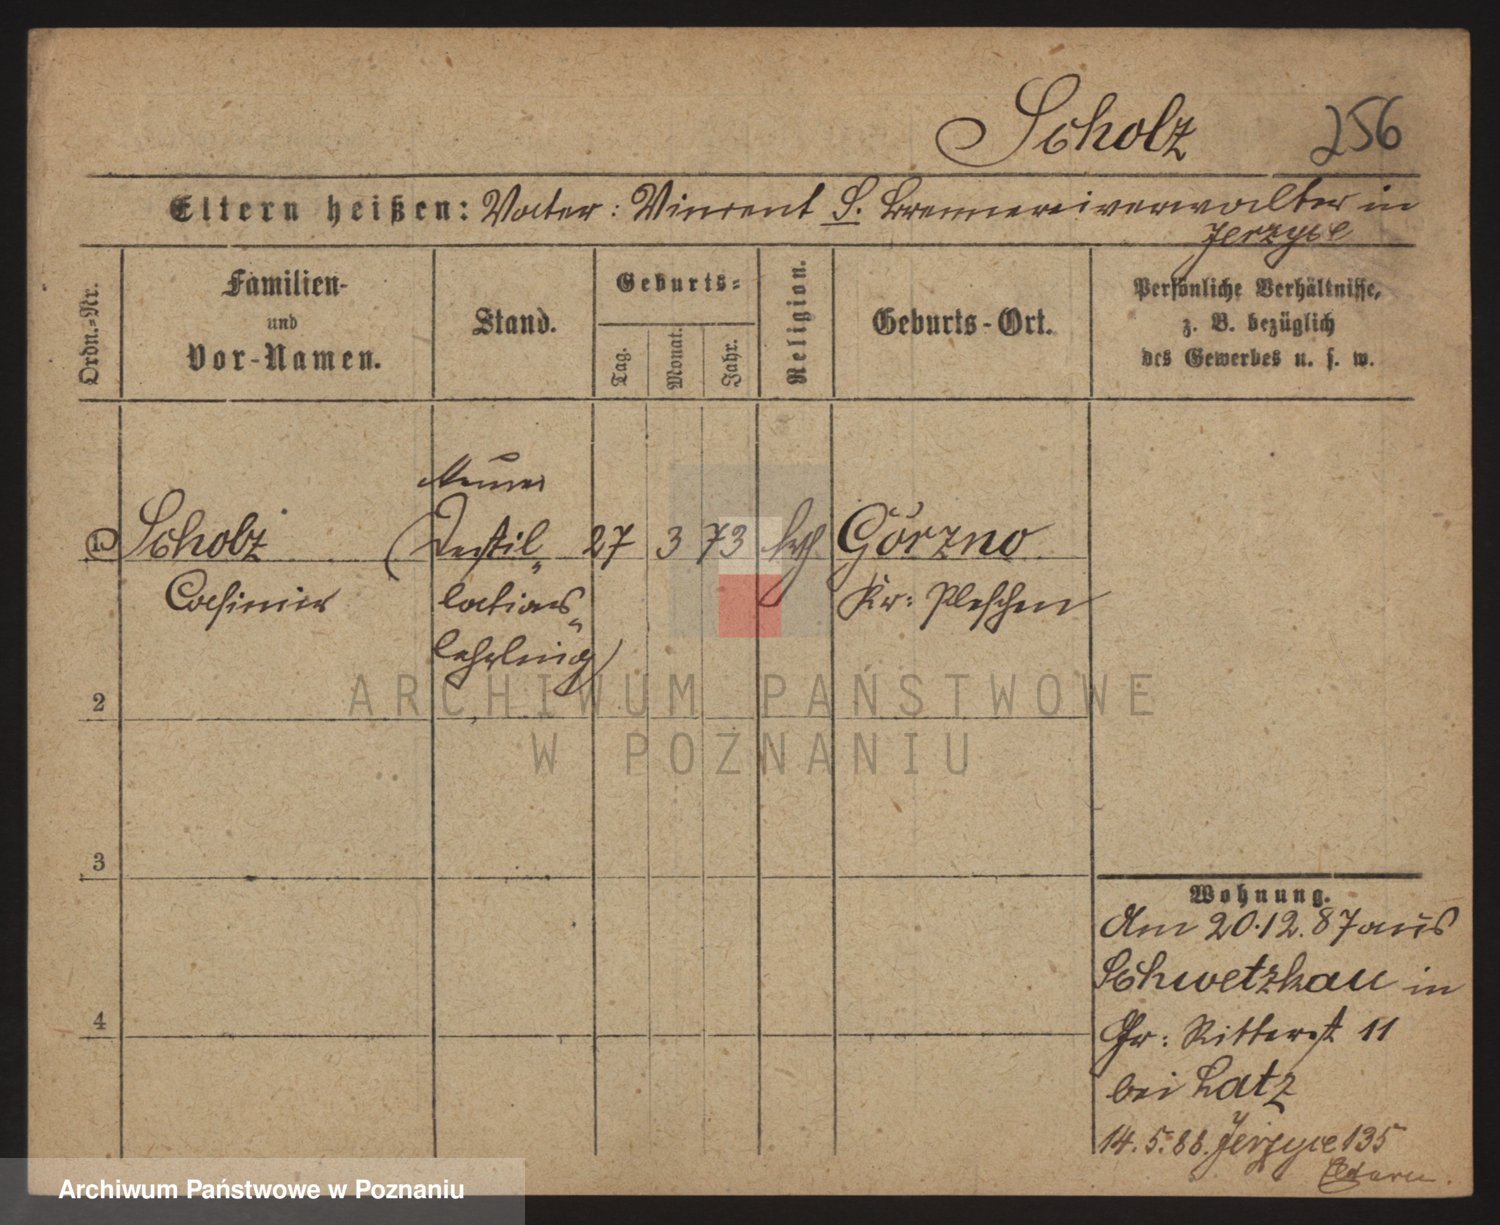 Scholz 256
Eltern heißen: Vater: Vincent S. Brennereiverwalter in
Jerzyce
Ordn.-Nr.
Familien-
und
Vor-Namen.
Stand.
Geburts-
Tag.
Monat.
Jahr.
Religion.
Geburts-Ort.
Persönliche Verhältnisse,
z. B. bezüglich
des Gewerbes u. s. w.
1 Scholz (Destil- 27 3 73 kth Górzno
Casimir lations- Kr: Pleschen
lehrling)
2
3
4
Wohnung.
Am 20.12.87 aus
Schwetzkau in
Gr: Ritterst 11
bei Latz
14.5.88. Jerzyce 135
ARCHIWUM PAŃSTWOWE
W POZNANIU
Archiwum Państwowe w Poznaniu